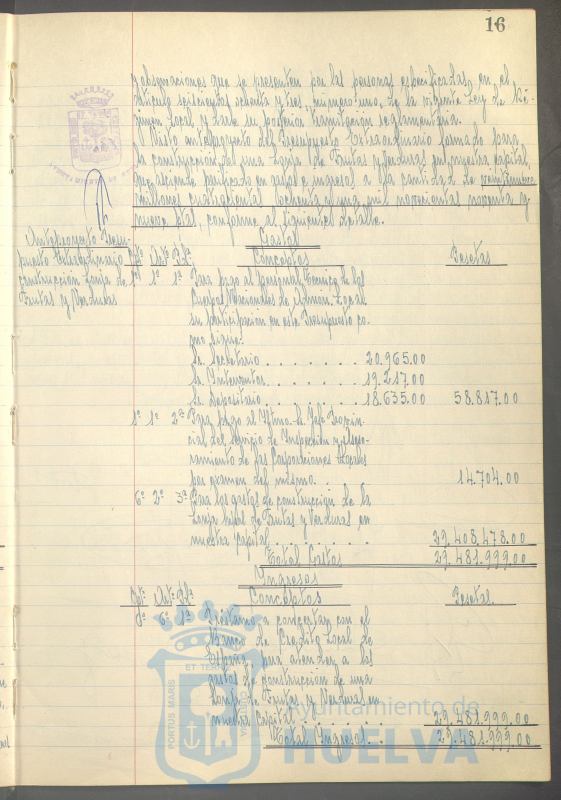 16
y observaciones que se presenten por las personas especificadas en el
artículo seiscientos ochenta y tres, número uno, de la vigente Ley de Ré-
gimen Local y para su posterior tramitación reglamentaria.
Visto anteproyecto del Presupuesto Extraordinario formado para
la construcción de una Lonja de Frutas y Verduras en nuestra capital,
que asciende nivelado en gastos e ingresos a la cantidad de veintinueve
millones cuatrocientas ochenta y una mil novecientas noventa y
nueve ptas, conforme al siguiente detalle.
Anteproyecto Presu-
puesto Extraordinario
construcción Lonja de
Frutas y Verduras
Gastos
Conceptos Pesetas
1º 1º 1º Para pago al personal Técnico de los
Cuerpos Nacionales de Admon. Local
su participación en este Presupuesto co-
mo sigue:
Sr. Secretario . . . . . . . . 20.965.00
Sr. Interventor . . . . . . . . 19.217.00
Sr. Depositario . . . . . . . . 18.635.00 58.817.00
1º 1º 2º Para pago al Iltmo. Sr. Jefe Provin-
cial del Servicio de Inspección y Aseso-
ramiento de las Corporaciones Locales
por examen del mismo . . 14.704.00
6º 2º 3º Para los gastos de construcción de la
Lonja de Frutas y Verduras en
nuestra capital . . . . . . . . 29.408.478.00
Total Gastos 29.481.999.00
Ingresos
Conceptos Pesetas
8º 6º 1º Préstamo a concertar con el
Banco de Crédito Local de
España para atender a los
gastos de construcción de una
Lonja de Frutas y Verduras en
nuestra Capital . . . . . . 29.481.999.00
Total Ingresos . . . 29.481.999.00
PORTUS MARIS
ET TERRAE
CUSTODIA
Ayuntamiento de
HUELVA